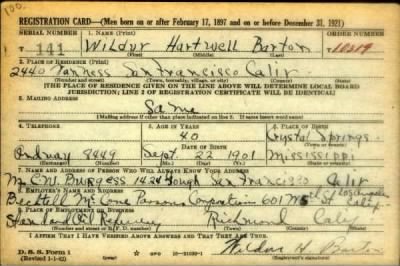 REGISTRATION CARD—(Men born on or after February 17, 1897 and on or before December 31, 1921)
SERIAL NUMBER 1. NAME (Print) ORDER NUMBER
T 141 Wildur Hartwell Barton
(First) (Middle) (Last)
2. PLACE OF RESIDENCE (Print)
2440 Van Ness San Francisco Calif
(Number and street) (Town, township, village, or city) (County) (State)
[THE PLACE OF RESIDENCE GIVEN ON THE LINE ABOVE WILL DETERMINE LOCAL BOARD
JURISDICTION; LINE 2 OF REGISTRATION CERTIFICATE WILL BE IDENTICAL]
3. MAILING ADDRESS
Same
[Mailing address if other than place indicated on line 2. If same insert word same]
4. TELEPHONE 5. AGE IN YEARS 6. PLACE OF BIRTH
40 Crystal Springs
DATE OF BIRTH
Ordway 8449 Sept 22 1901 Mississippi
(Exchange) (Number) (Mo.) (Day) (Yr.) (State or country)
7. NAME AND ADDRESS OF PERSON WHO WILL ALWAYS KNOW YOUR ADDRESS
C.W. Burgess 1424 Gough San Francisco Calif
8. EMPLOYER'S NAME AND ADDRESS
Bechtell McCone Parsons Corporation 601 W 5th St Los Angeles Calif
9. PLACE OF EMPLOYMENT OR BUSINESS
Standard Oil Refinery Richmond Calif
(Number and street or R. F. D. number) (Town) (County) (State)
I AFFIRM THAT I HAVE VERIFIED ABOVE ANSWERS AND THAT THEY ARE TRUE.
D. S. S. Form 1
(Revised 1-1-42) GPO 16—21630-1 Wildur H Barton